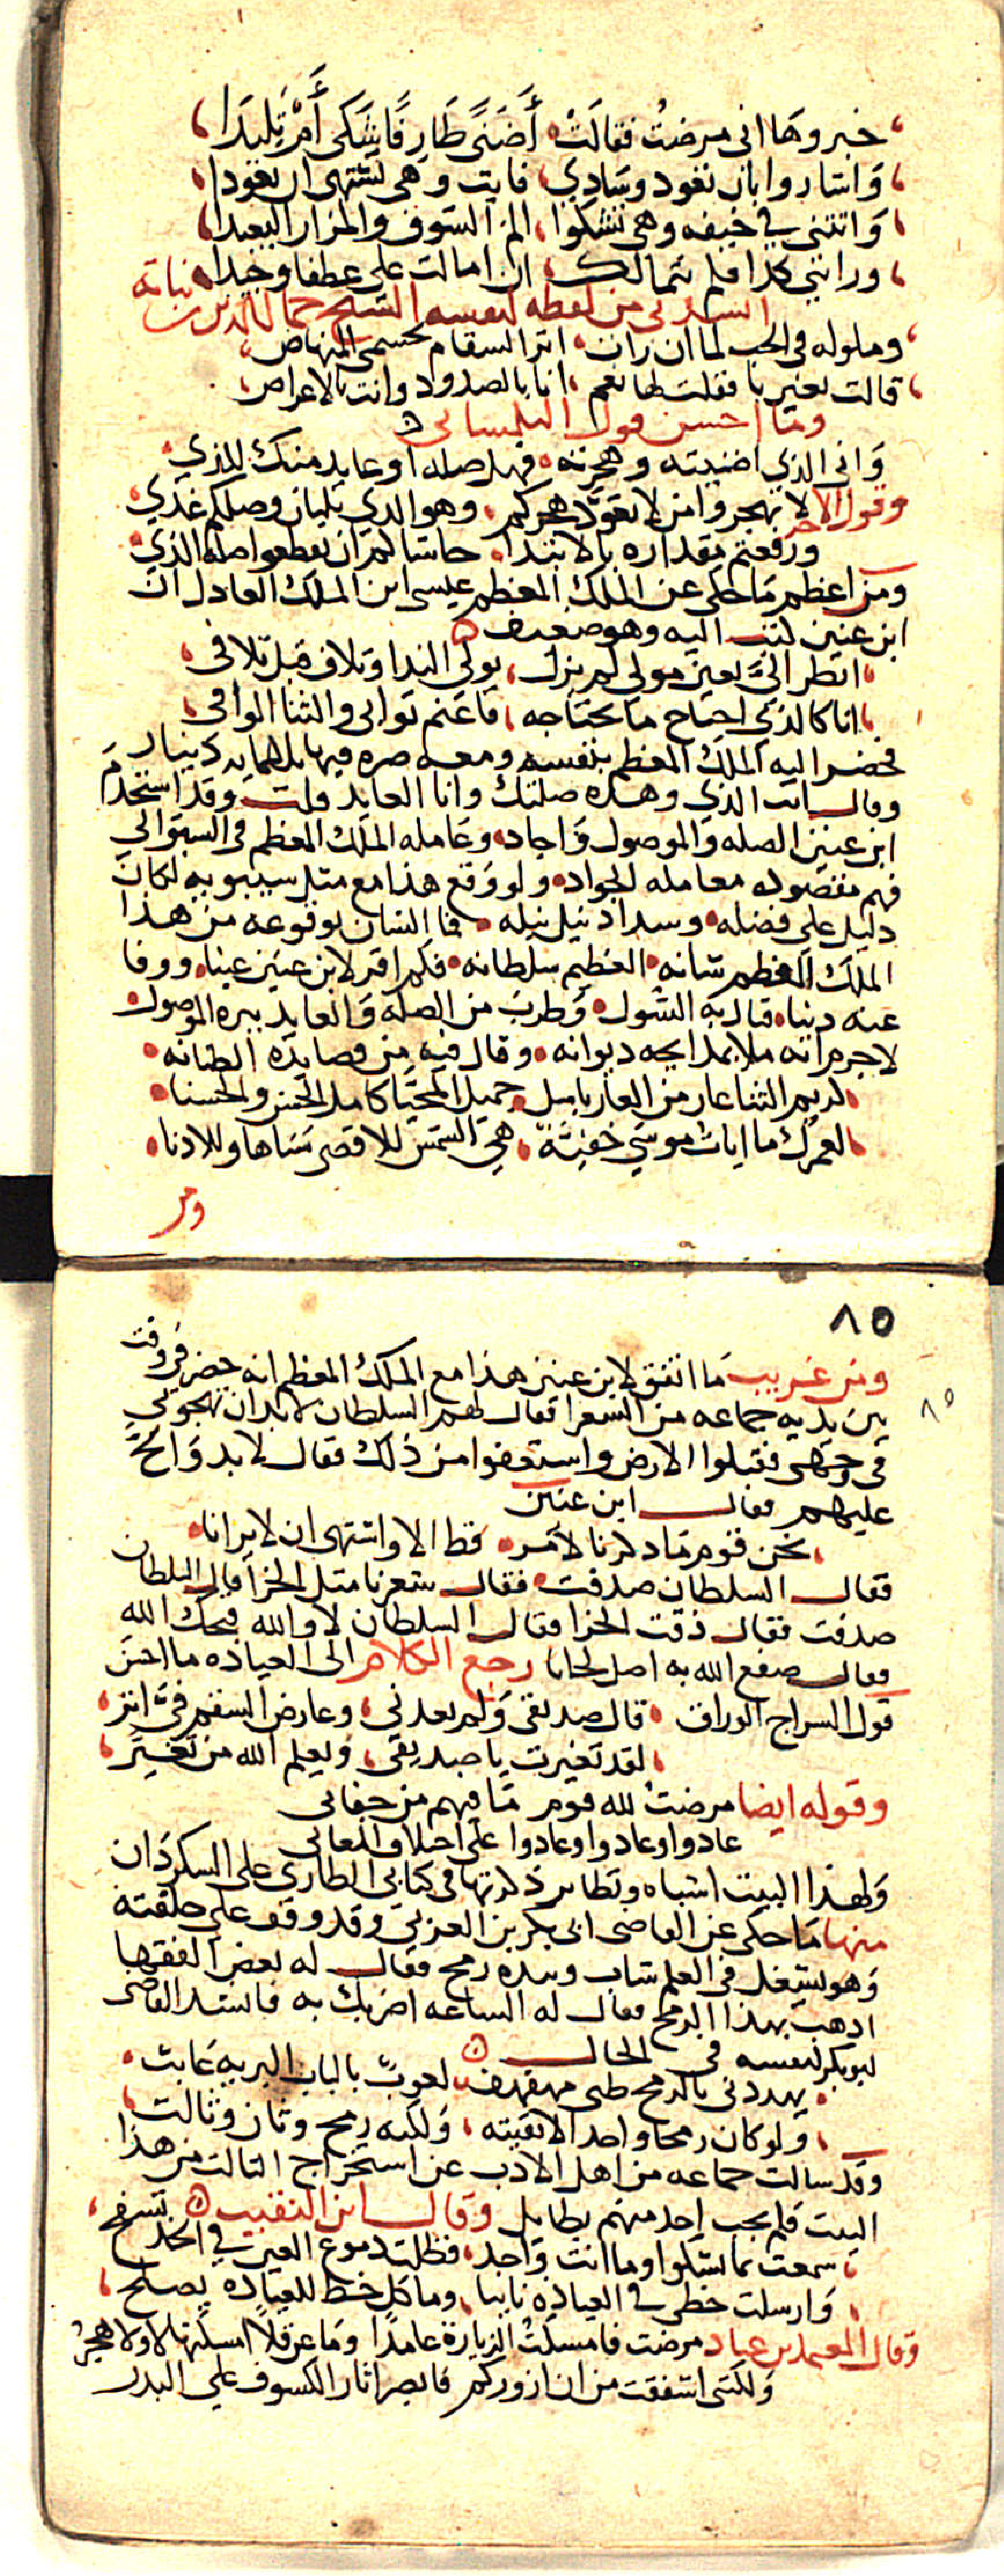 خبروها انى مرضت فقالت أضنىً طارفا شكى أم تليدا
واشاروا بان تعود وسادي فابت وهي تشتهى ان تعودا
واتتنى في خيفه وهى تشكوا الم الشوق والمزار البعيدا
وراتني كذا فلم تتمالك ان امالت على عطفا وجيدا
انشدنى من لفظه لنفسه الشيخ جمال الدين بن نباته
وملوله فى الحب لما ان رات اثر السقام بجسمى المنهاض
قالت تغيرنا فقلت لها نعم انا بالصدود وانت بالاعراض
وما احسن قول التلمسانى
وانى الذي اضنيته وهجرته فهل صله او عايد منك للذي
وقول الاخر لا تهجروا من لا تعود هجركم وهو الذي بلبان وصلكم غذي
ورفعتم مقداره بالابتدا حاشا لكم ان تقطعوا صلة الذي
ومن اعظم ما حكى عن الملك المعظم عيسى ابن الملك العادل ان
ابن عنين كتب اليه وهو ضعيف
انظر الىّ بعين مولى لم يزل يولى الندا وتلاف قبل تلافى
انا كالذي احتاج ما يحتاجه فاغنم ثوابى والثنا الوافى
فحضر اليه الملك المعظم بنفسه ومعه صره فيها ثلثمايه دينار
وقال انت الذي وهذه صلتك وانا العايد قلت وقد استخدم
ابن عنين الصله والموصول واجاد وعامله الملك المعظم فى السؤالي
فهم مقصوده معامله الجواد ولو وقع هذا مع مثل سيبويه لكان
دليل على فضله وسداد نيل نبله فما الشان بوقوعه من هذا
الملك المعظم شانه العظيم سلطانه فكم اقر لابن عنين عينا ووفا
عنه دينا فنال به السول وطرب من الصله والعايد ببره الموصول
لاجرم انه ملا بمدايحه ديوانه وقال فيه من قصايده الطنانه
كريم الثنا عار من العار باسل جميل المحيا كامل الحسن والحسنا
لعمرك ما ايات موسي خفيّة هي الشمس للاقصى سناها وللادنا
ومن
٨٥
ومن غريب ما اتفق لابن عنين هذا مع الملك المعظم انه حضر فى وقت
بين يديه جماعه من الشعرا فقال لهم السلطان لابد ان تهجوني
فى وجهى فقبلوا الارض واستعفوا من ذلك فقال لا بد والحّ
عليهم فقال ابن عنين
نحن قوم ما ذكرنا لامر قط الا واشتهى ان لا يرانا
فقال السلطان صدقت فقال شعرنا مثل الخرا فقال السلطان
صدقت فقال ذقت الخرا فقال السلطان لا والله قبحك الله
فقال صفع الله به اصل لحانا رجع الكلام الى العياده ما احسن
قول السراج الوراق قال صديقى ولم يعدنى وعارض السقم فىّ اثر
لقد تغيرت يا صديقى ويعلم الله من تغيّر
وقوله ايضا مرضت لله قوم ما فيهم من جفانى
عادوا وعادوا وعادوا على اختلاف المعانى
ولهذا البيت اشباه ونظاير ذكرتها فى كتابى الطارى على السكردان
منها ما حكى عن القاضى ابى بكر بن العربي وقد وقف على حلقته
وهو يشتغل فى العلم شاب وبيده رمح فقال له بعض الفقها
اذهب بهذا الرمح فقال له الساعه اضربك به فانشد القاضى
ابوبكر لنفسه فى الحال
يهددنى بالرمح ظبى مهفهف لعوب بالباب البريه عابث
ولو كان رمحا واحدا لاتقيته ولكنه رمح وثان وثالث
وقد سالت جماعه من اهل الادب عن استخراج الثالث من هذا
البيت فلم يجب احد منهم بطايل وقال ابن النقيب
سمعت بما تشكوا وما انت واجد فظلت دموع العين في الخد تسفح
وارسلت خطى فى العياده نايبا وما كل خط للعياده يصلح
وقال المعتمد بن عباد مرضت فامسكت الزيارة عامدا وما عن قلاً امسكتها لا ولا هجر
ولكننى اشفقت من ان ازوركم فابصر اثار الكسوف على البدر